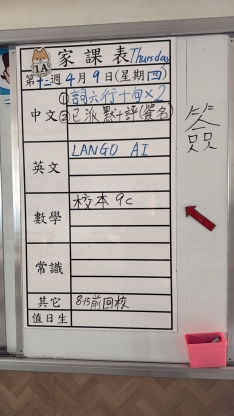 1A 家課表 Thursday
第十二週 4月9日(星期四)
中文 ①詞六行十句×2
②已派默十評(簽名)
英文 LANGO AI
數學 校本 9c
常識
其它 8:15前回校
值日生
簽